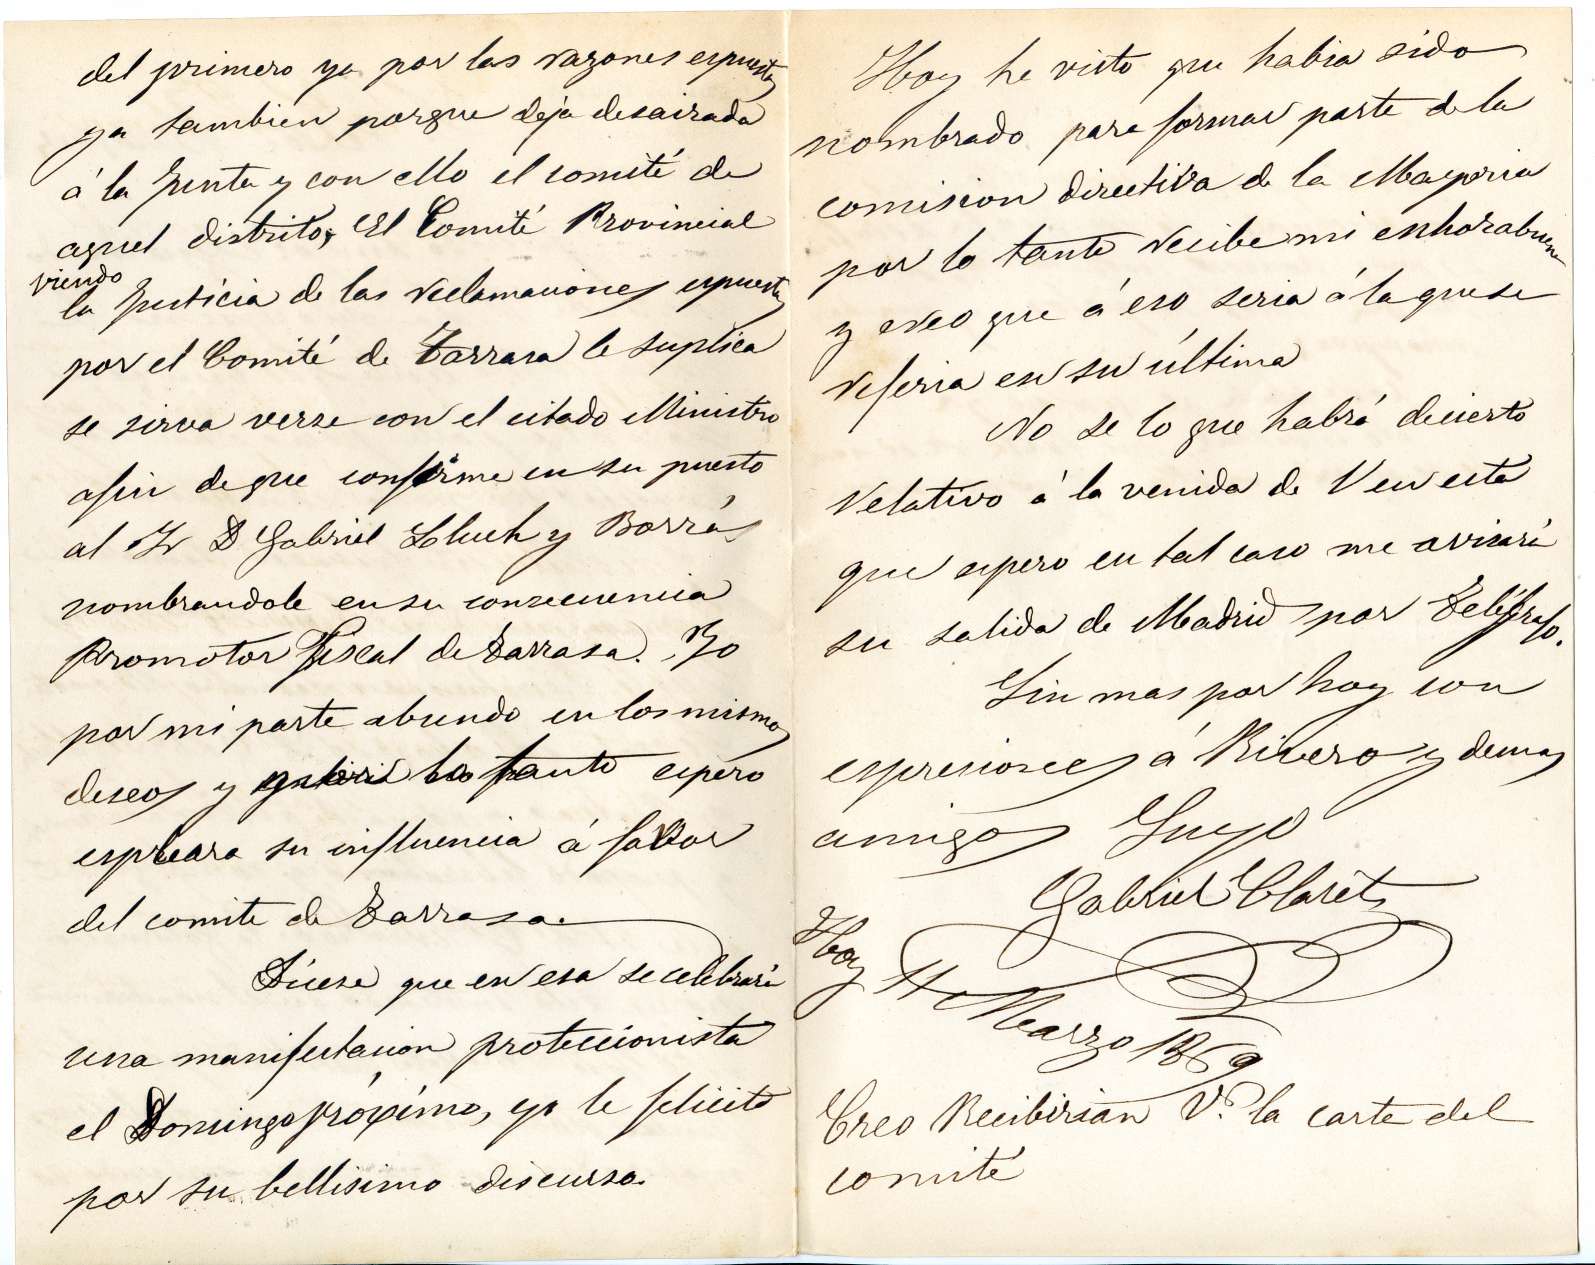 del primero ya por las razones espuestas
ya tambien porque deja desairada
á la Junta y con ello el comité de
aquel distrito, El Comité Provincial
viendo
la Justicia de las reclamaciones espuestas
por el Comité de Tarrasa le suplica
se sirva verse con el citado Ministro
afin de que confirme en su puesto
al Sr D Gabriel Lluch y Borrás
nombrandole en su consecuencia
Promotor Fiscal de Tarrasa. Yo
por mi parte abundo en los mismos
deseos y lo tanto espero
empleara su influencia á favor
del comite de Tarrasa.
Dícese que en esa se celebrará
una manifestacion proteccionista
el Domingo próximo, yo le felicito
por su bellisimo discurso.
Hoy he visto que habia sido
nombrado para formar parte de la
comision directiva de la Mayoria
por lo tanto recibe mi enhorabuena
y creo que á eso seria á la que se
referia en su última
No se lo que habrá de cierto
relativo á la venida de V en esta
que espero en tal caso me avisará
su salida de Madrid por Telégrafo.
Sin mas por hoy con
espresiones á Rivero y demas
amigos Suyo
Gabriel Claret
Hoy 11 Marzo 1869
Creo Recibirian V. la carta del
comité